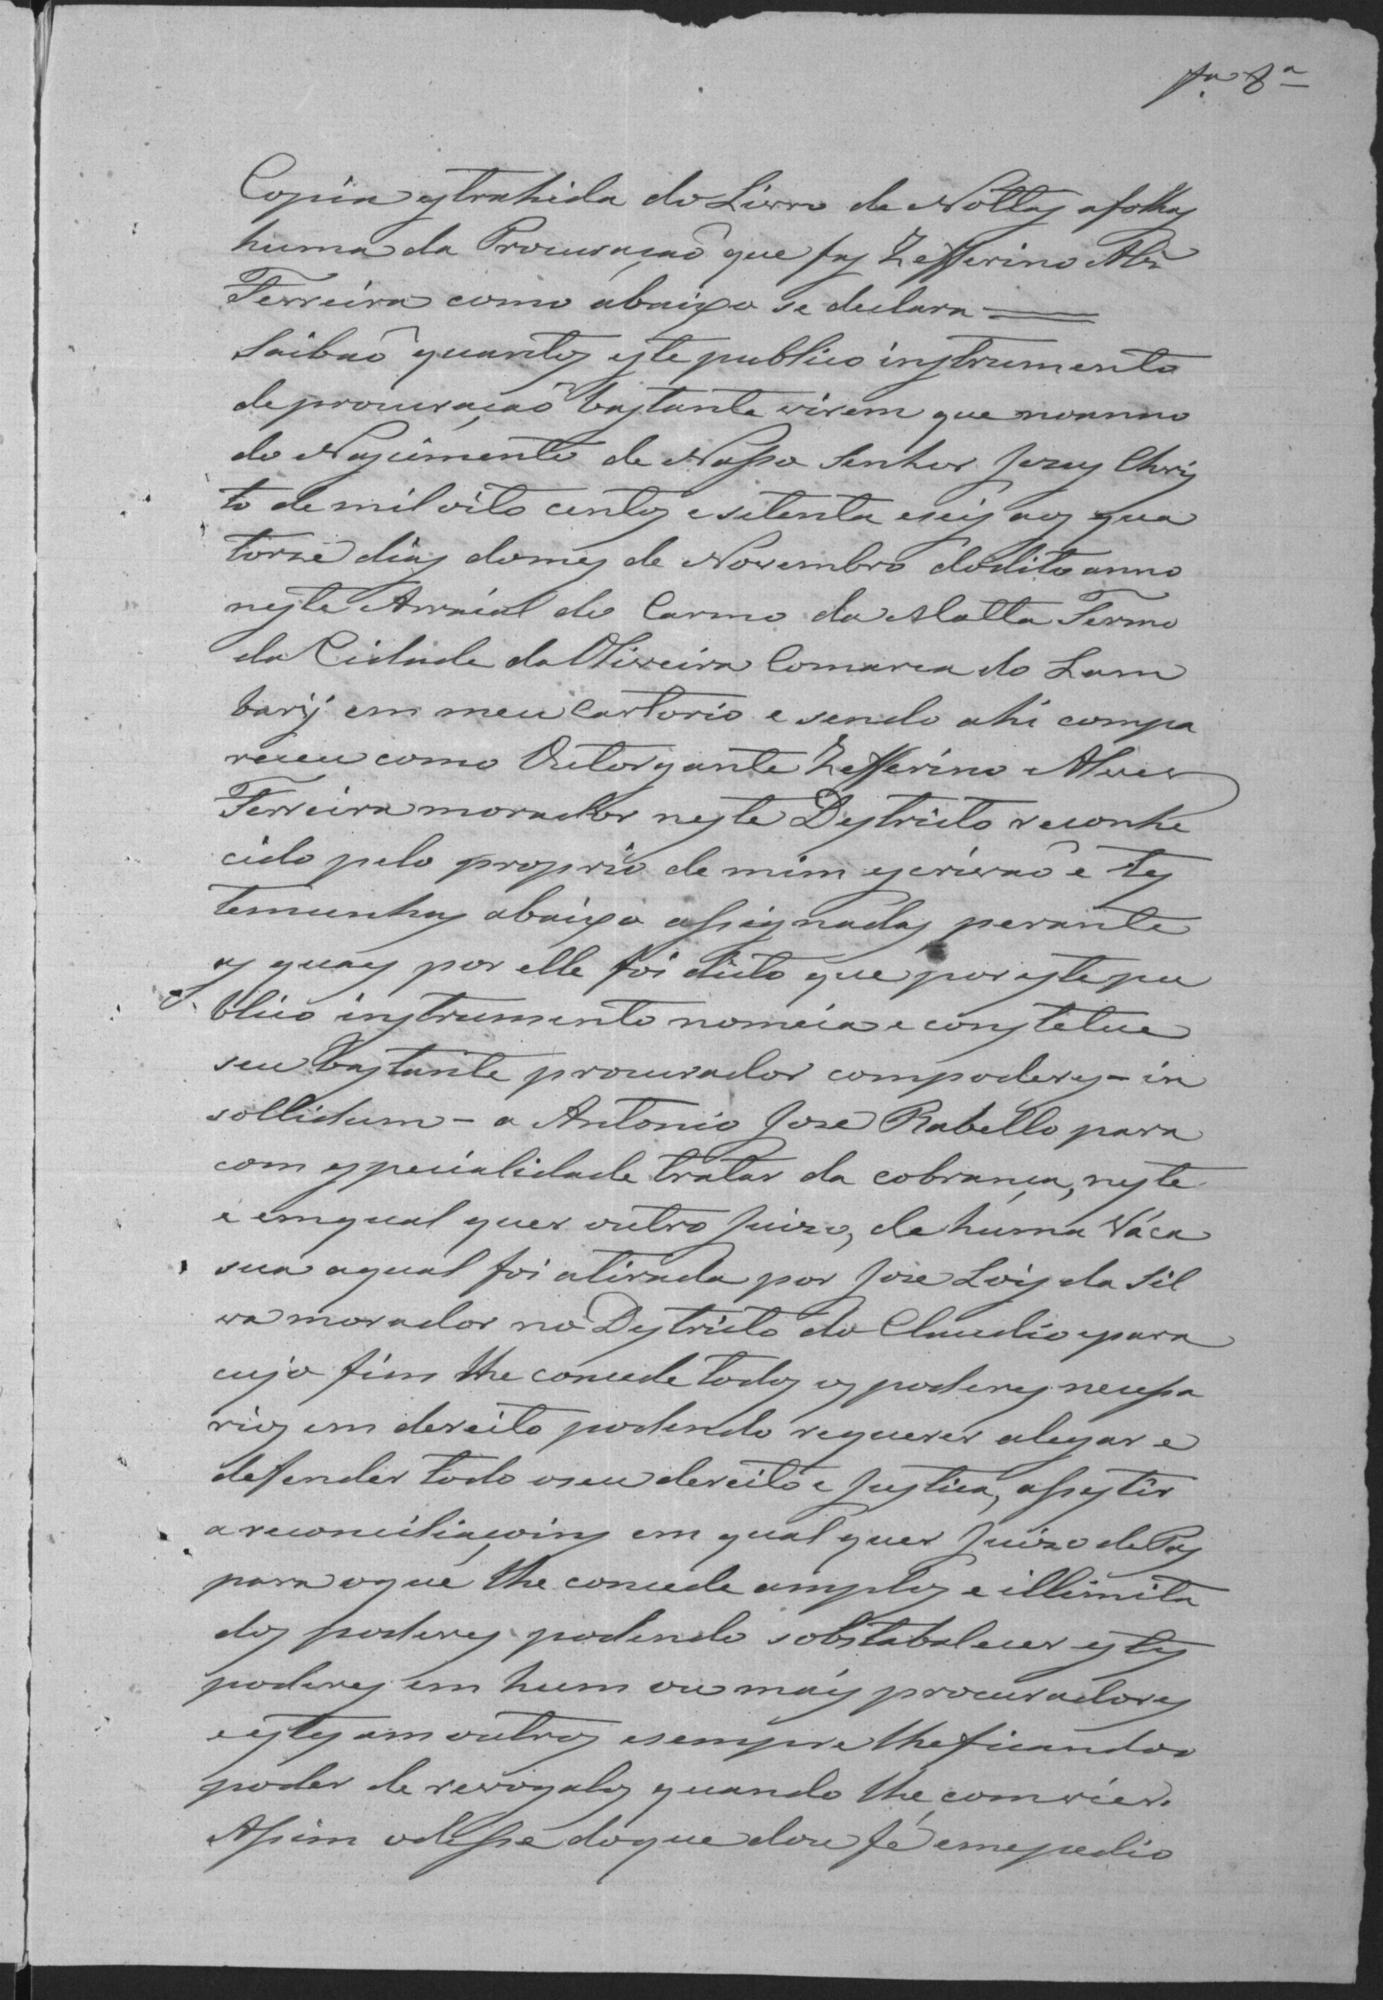 Copia extrahida do Livro de Nottas afolhas
huma da Procuração que faz Zefferino Alvz
Ferreira como abaixo se declara
Saibaõ quantos este publico instrumento
de procuraçaõ bastante virem que noanno
do Nascimento de Nosso Senhor Jezus Chris
to de mil oito centos e setenta e seis aos qua
torze dias domes de Novembro dodito anno
neste Arraial do Carmo da Matta Termo
da Cidade da Oliveira Comarca do Lam
bary em meu Cartorio e sendo ahi compa
receu como Outorgante Zefferino Alves
Ferreira morador neste Destricto reconhe
cido pelo proprio de mim escrivaõ e tes
temunhas abaixo assignadas perante
as quaes por elle foi dicto que por este pu
blico instrumento nomeia e constetue
seu bastante procurador compoderes - in
sollidum - a Antonio Jose Rabello para
com especialidade tratar da cobrança, neste
e emqual quer outro Juizo, de huma Váca
sua aqual foi atirada por Jose Lois da Sil
va morador no Destricto do Claudio epara
cujo fim lhe concede todos os poderes necessa
rios em dereito podendo requerer alegar e
defender todo oseu dereito e Justica, assestir
a reconciliaçoins em qual quer Juizo de Pas
para oque lhe concede amplos e illimita
dos poderes podendo sobstabalecer estes
poderes em hum ou máis procuradores
e estes em outros esempre lhe ficando o
poder de revogalos quando lhe comvier.
Assim odisse doque dou fé emepedio